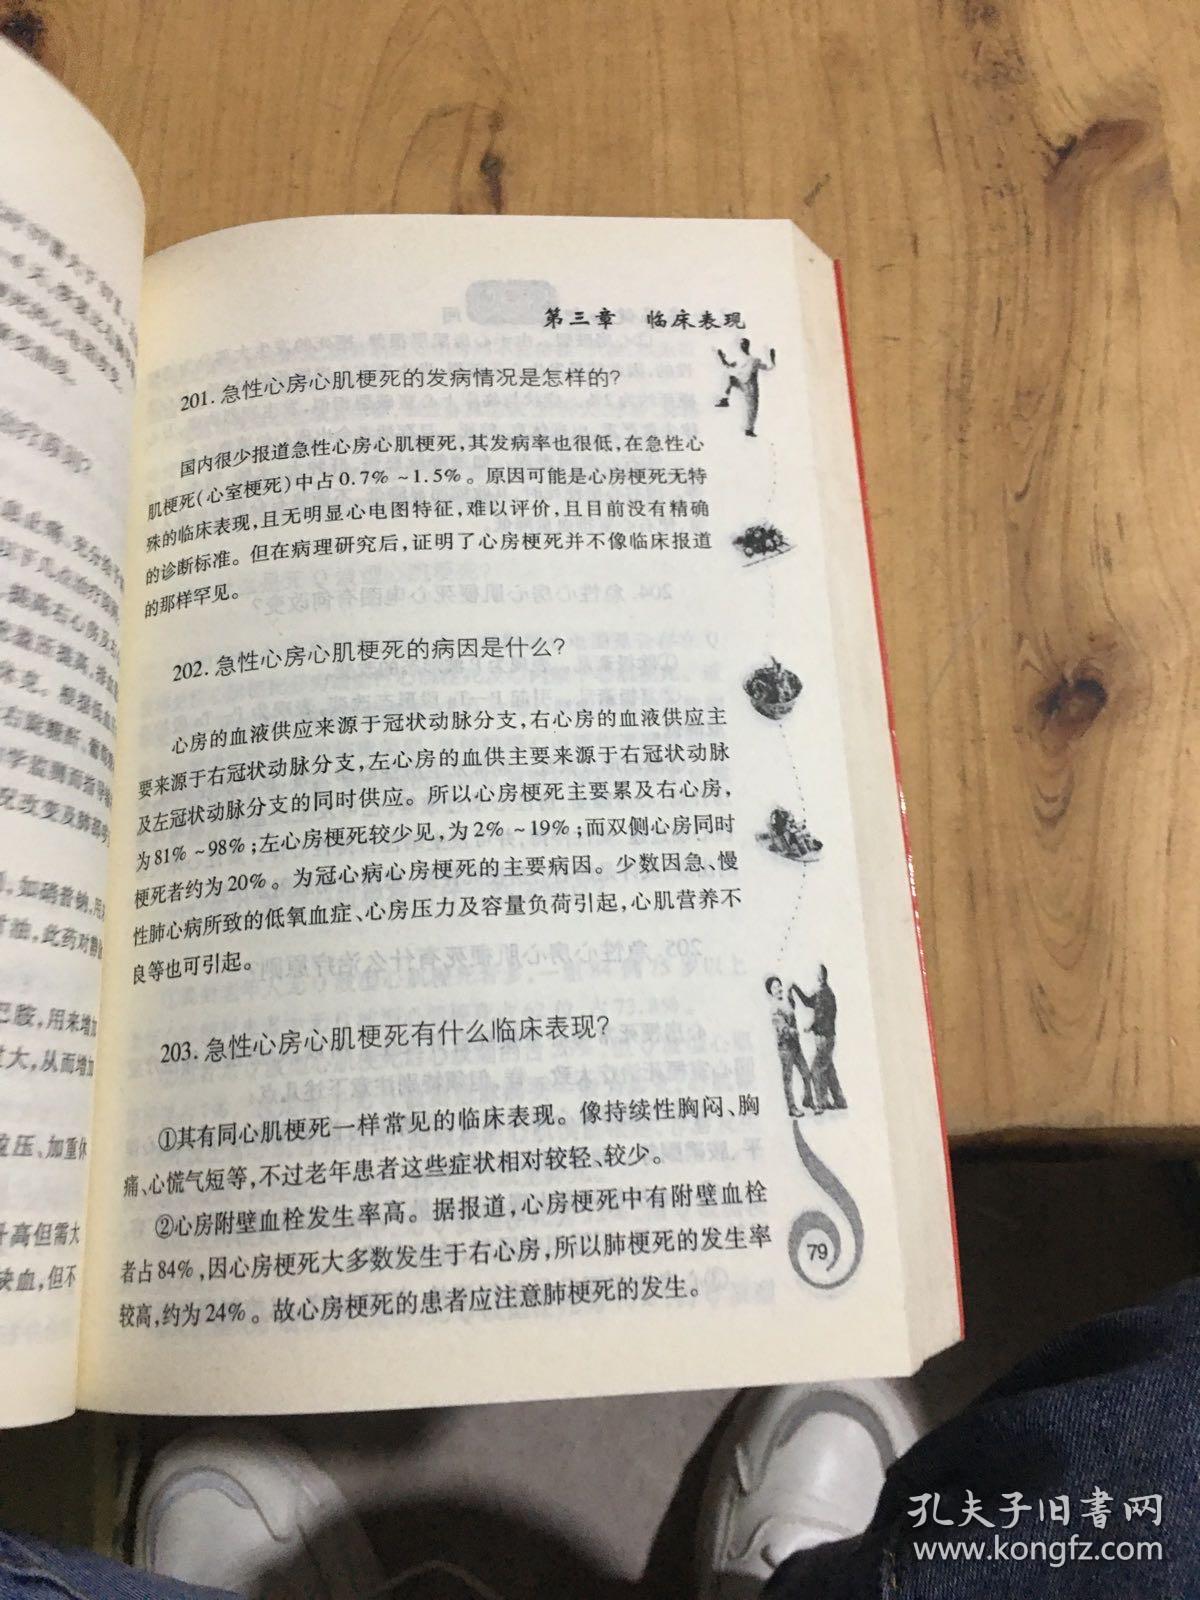 第三章 临床表现
201. 急性心房心肌梗死的发病情况是怎样的?
国内很少报道急性心房心肌梗死,其发病率也很低,在急性心
肌梗死(心室梗死)中占0.7%~1.5%。原因可能是心房梗死无特
殊的临床表现,且无明显心电图特征,难以评价,且目前没有精确
的诊断标准。但在病理研究后,证明了心房梗死并不像临床报道
的那样罕见。
202. 急性心房心肌梗死的病因是什么?
心房的血液供应来源于冠状动脉分支,右心房的血液供应主
要来源于右冠状动脉分支,左心房的血供主要来源于右冠状动脉
及左冠状动脉分支的同时供应。所以心房梗死主要累及右心房,
为81%~98%;左心房梗死较少见,为2%~19%;而双侧心房同时
梗死者约为20%。为冠心病心房梗死的主要病因。少数因急、慢
性肺心病所致的低氧血症、心房压力及容量负荷引起,心肌营养不
良等也可引起。
203. 急性心房心肌梗死有什么临床表现?
①其有同心肌梗死一样常见的临床表现。像持续性胸闷、胸
痛、心慌气短等,不过老年患者这些症状相对较轻、较少。
②心房附壁血栓发生率高。据报道,心房梗死中有附壁血栓
者占84%,因心房梗死大多数发生于右心房,所以肺梗死的发生率
较高,约为24%。故心房梗死的患者应注意肺梗死的发生。
79
孔夫子旧书网
www.kongfz.com